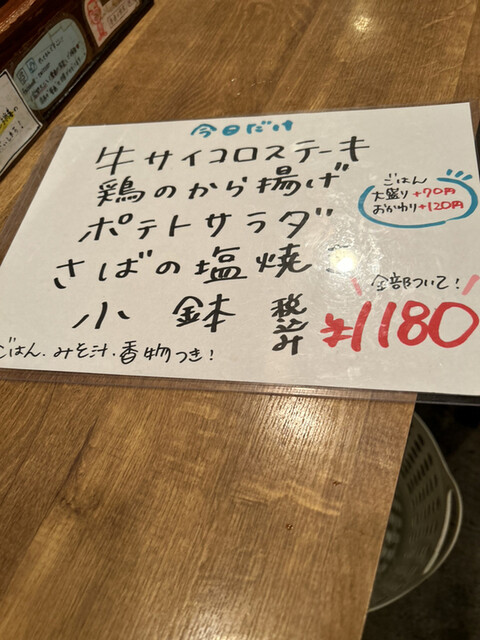 今日だけ
牛サイコロステーキ
鶏のから揚げ
ポテトサラダ
さばの塩焼
小鉢
税込み
ごはん
大盛り+70円
おかわり+120円
全部ついて!
¥1180
ごはん.みそ汁.香物つき!